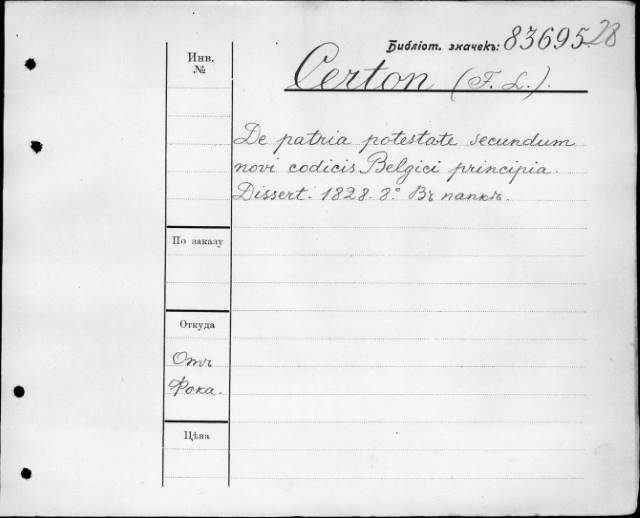 Библіот. значекъ: 83695 28
Инв.
№
Certon (F. L.).
De patria potestate secundum
novi codicis Belgici principia.
Dissert. 1828. 8.° Въ папкѣ.
По заказу
Откуда
Отъ
Фока.
Цѣна